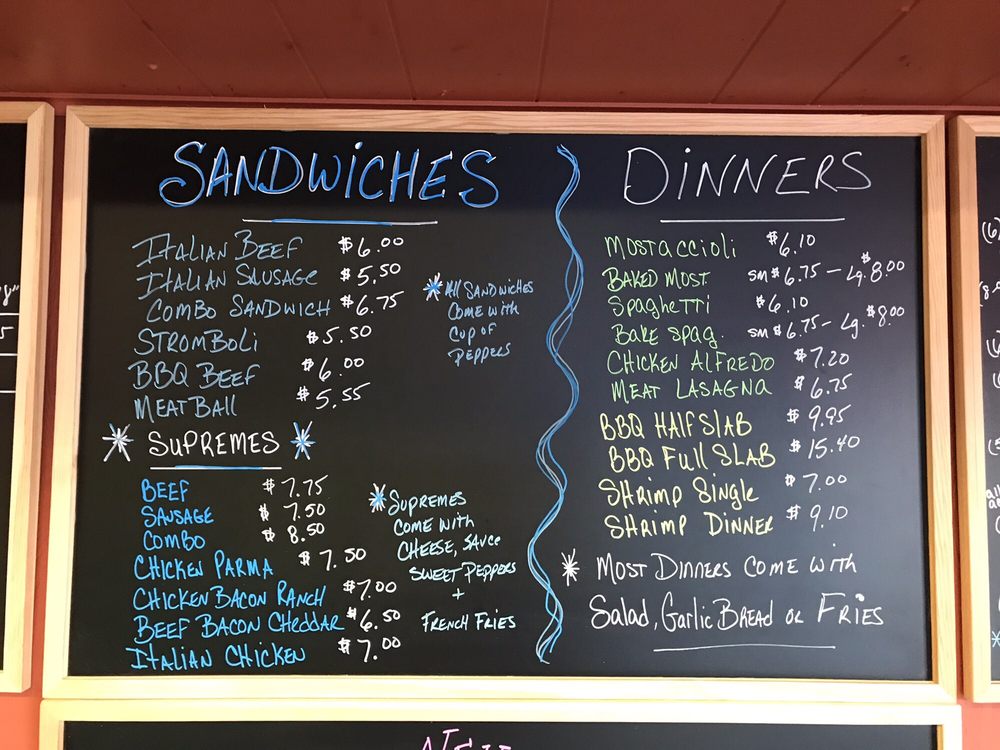 SANDWiCHES
ITALIAN BEEF $6.00
ITALIAN SAUSAGE $5.50
COMBO SANDWICH $6.75
STROMBOLi $5.50
BBQ BEEF $6.00
MEATBAll $5.55
* All SANDWiCHES
COME WiTH
CUP OF
PEPPERS
* SUPREMES *
BEEF $7.75
SAUSAGE $7.50
COMBO $8.50
CHICKEN PARMA $7.50
CHICKEN BACON RANCH $7.00
BEEF BACON CHEDDAR $6.50
ITALIAN CHICKEN $7.00
* SUPREMES
COME WITH
CHEESE, SAUCE
SWEET PEPPERS
+
FRENCH FRIES
DiNNERS
MOSTACCIOLI $6.10
BAKED MOST. SM $6.75 - Lg. $8.00
SpagheTTi $6.10
BAKE SPAG. SM $6.75 - Lg. $8.00
CHICKEN ALFREDO $7.20
MEAT LASAGNA $6.75
BBQ HALF SLAB $9.95
BBQ Full SLAB $15.40
SHRimp Single $7.00
SHRimp DiNNER $9.10
* MOST DINNERS COME WiTH
Salad, GARLiC BREAD OR FRiES
NEW